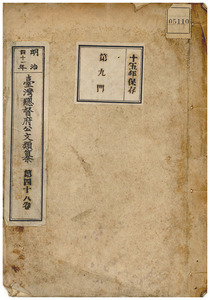 05110
十五年保存
第九門
明治
四十一年
臺灣總督府公文類纂
第四十八卷